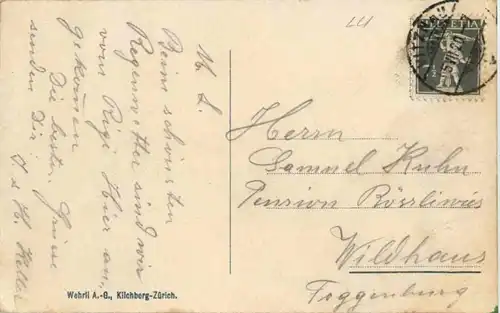 M. L.
Beim schönsten
Regenwetter sind wir
vom Rigi hier an,
gekommen
Die besten Grüsse
senden Dir
J. & H. Keller
Herrn
Samuel Kuhn
Pension Rössliwies
Wildhaus
Toggenburg
HELVETIA
Wehrli A.-G., Kilchberg-Zürich.